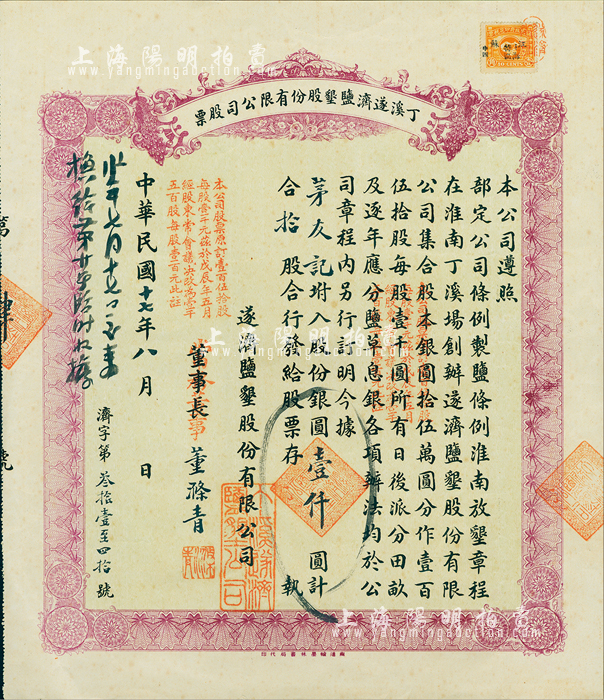 上海陽明拍賣
www.yangmingauction.com
丁溪遂濟鹽墾股份有限公司股票
本公司遵照
部定公司條例製鹽條例淮南放墾章程
在淮南丁溪場創辦遂濟鹽墾股份有限
公司集合股本銀圓拾伍萬圓分作壹百
伍拾股每股壹千圓所有日後派分田畝
及逐年應分鹽墾息銀各項辦法均於公
司章程內另行訂明今據
茅友記附入股份銀圓壹仟圓計
合拾股合行發給股票存執
遂濟鹽墾股份有限公司
董事長 董滌青
本公司股票原訂壹百伍拾股
每股壹千元茲於戊辰年五月
經股東常會議決改為壹千
五百股每股壹百元此註
中華民國十七年八月日
濟字第叁拾壹至四拾號
第
號
上海陽明拍賣
www.yangmingauction.com
上海陽明拍賣
www.yangmingauction.com